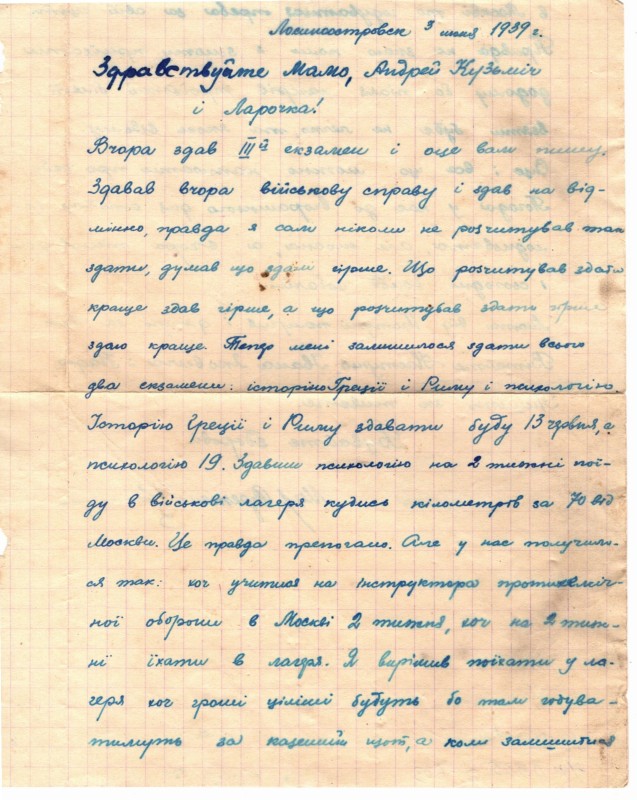 Лосиноостровск 3 июня 1939 г.
Здравствуйте Мамо, Андрей Кузьміч
і Ларочка!
Вчора здав IIIй екзамен і оце вам пишу.
Здавав вчора військову справу і здав на від-
мінно, правда я сам ніколи не розчитував так
здати, думав що здам гірше. Що розчитував здати
краще здав гірше, а що розчитував здати гірше
здаю краще. Тепер мені залишилося здати всього
два екзамени: історію Греції і Риму і психологію.
Історію Греції і Риму здавати буду 13 червня, а
психологію 19. Здавши психологію на 2 тижні пої-
ду в військові лагеря кудись кілометрів за 70 від
Москви. Це правда препогано. Але у нас получило-
ся так: хоч учитися на інструктора протихеміч-
ної оборони в Москві 2 тижня, хоч на 2 тиж-
ні їхати в лагеря. Я вирішив поїхати у ла-
геря хоч гроші ціліші будуть бо там годува-
тимуть за казенний щот, а коли залишитися